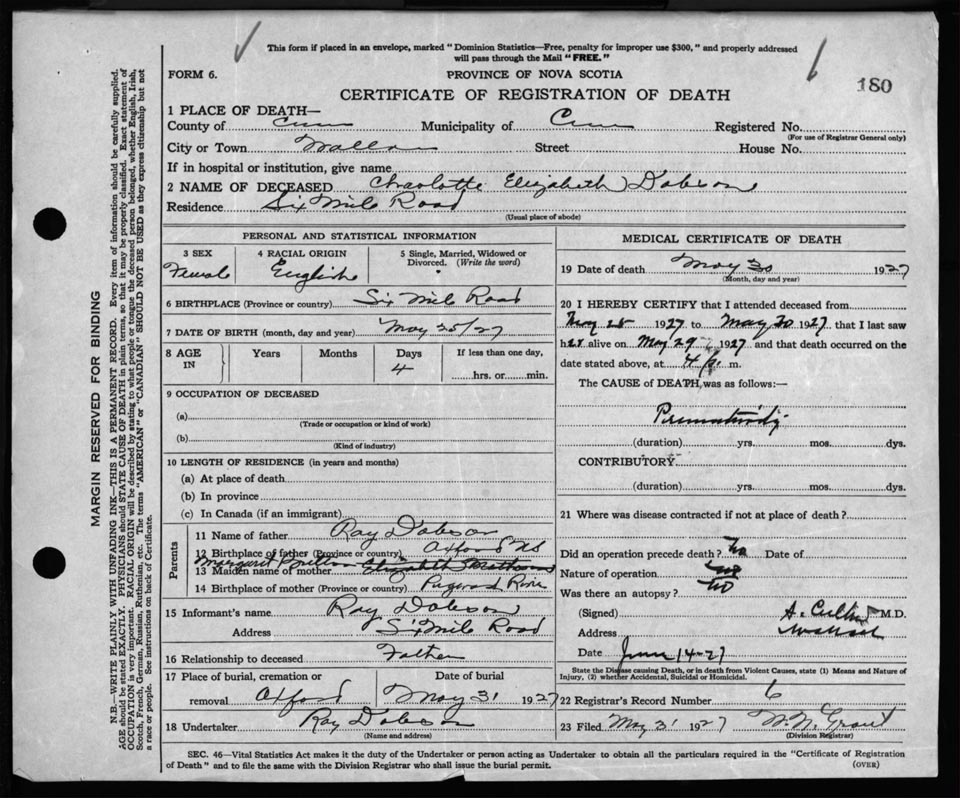 This form if placed in an envelope, marked "Dominion Statistics—Free, penalty for improper use $300," and properly addressed
will pass through the Mail "FREE."
FORM 6.
PROVINCE OF NOVA SCOTIA
180
CERTIFICATE OF REGISTRATION OF DEATH
1 PLACE OF DEATH—
County of Cum Municipality of Cum Registered No.
(For use of Registrar General only)
City or Town Wallace Street House No.
If in hospital or institution, give name
2 NAME OF DECEASED Charlotte Elizabeth Dobson
Residence Six Mile Road
(Usual place of abode)
PERSONAL AND STATISTICAL INFORMATION
3 SEX 4 RACIAL ORIGIN 5 Single, Married, Widowed or
Divorced. (Write the word)
Female English
6 BIRTHPLACE (Province or country) Six Mile Road
7 DATE OF BIRTH (month, day and year) May 25/27
8 AGE IN Years Months Days If less than one day,
4 hrs. or min.
9 OCCUPATION OF DECEASED
(a)
(Trade or occupation or kind of work)
(b)
(Kind of industry)
10 LENGTH OF RESIDENCE (in years and months)
(a) At place of death
(b) In province
(c) In Canada (if an immigrant)
Parents
11 Name of father Ray Dobson
12 Birthplace of father (Province or country) Oxford NS
Margaret
13 Maiden name of mother Elizabeth
14 Birthplace of mother (Province or country) Pugwash River
15 Informant's name Ray Dobson
Address Six Mile Road
16 Relationship to deceased Father
17 Place of burial, cremation or Date of burial
removal Oxford May 31 1927
18 Undertaker Ray Dobson
(Name and address)
MEDICAL CERTIFICATE OF DEATH
19 Date of death May 30 1927
(Month, day and year)
20 I HEREBY CERTIFY that I attended deceased from
May 25 1927 to May 30 1927 that I last saw
her alive on May 29 1927 and that death occurred on the
date stated above, at 4 p. m.
The CAUSE of DEATH was as follows:—
Prematurity
(duration) yrs. mos. dys.
CONTRIBUTORY
(duration) yrs. mos. dys.
21 Where was disease contracted if not at place of death?
Did an operation precede death? No Date of
Nature of operation
Was there an autopsy? No
(Signed) M.D.
Address Wallace
Date June 14-27
State the Disease causing Death, or in death from Violent Causes, state (1) Means and Nature of
Injury, (2) whether Accidental, Suicidal or Homicidal.
22 Registrar's Record Number 6
23 Filed May 31 1927 W. N. Grant
(Division Registrar)
SEC. 46—Vital Statistics Act makes it the duty of the Undertaker or person acting as Undertaker to obtain all the particulars required in the "Certificate of Registration
of Death" and to file the same with the Division Registrar who shall issue the burial permit.
(OVER)
MARGIN RESERVED FOR BINDING
N.B.—WRITE PLAINLY WITH UNFADING INK—THIS IS A PERMANENT RECORD. Every item of information should be carefully supplied.
AGE should be stated EXACTLY. PHYSICIANS should STATE CAUSE OF DEATH in plain terms, so that it may be properly classified. Exact statement of
OCCUPATION is very important. RACIAL ORIGIN will be described by stating to what people or tongue the deceased person belonged, whether English, Irish,
Scotch, French, German, Russian, Ruthenian, etc. The terms "AMERICAN" or "CANADIAN" SHOULD NOT BE USED as they express citizenship but not
a race or people. See instructions on back of Certificate.